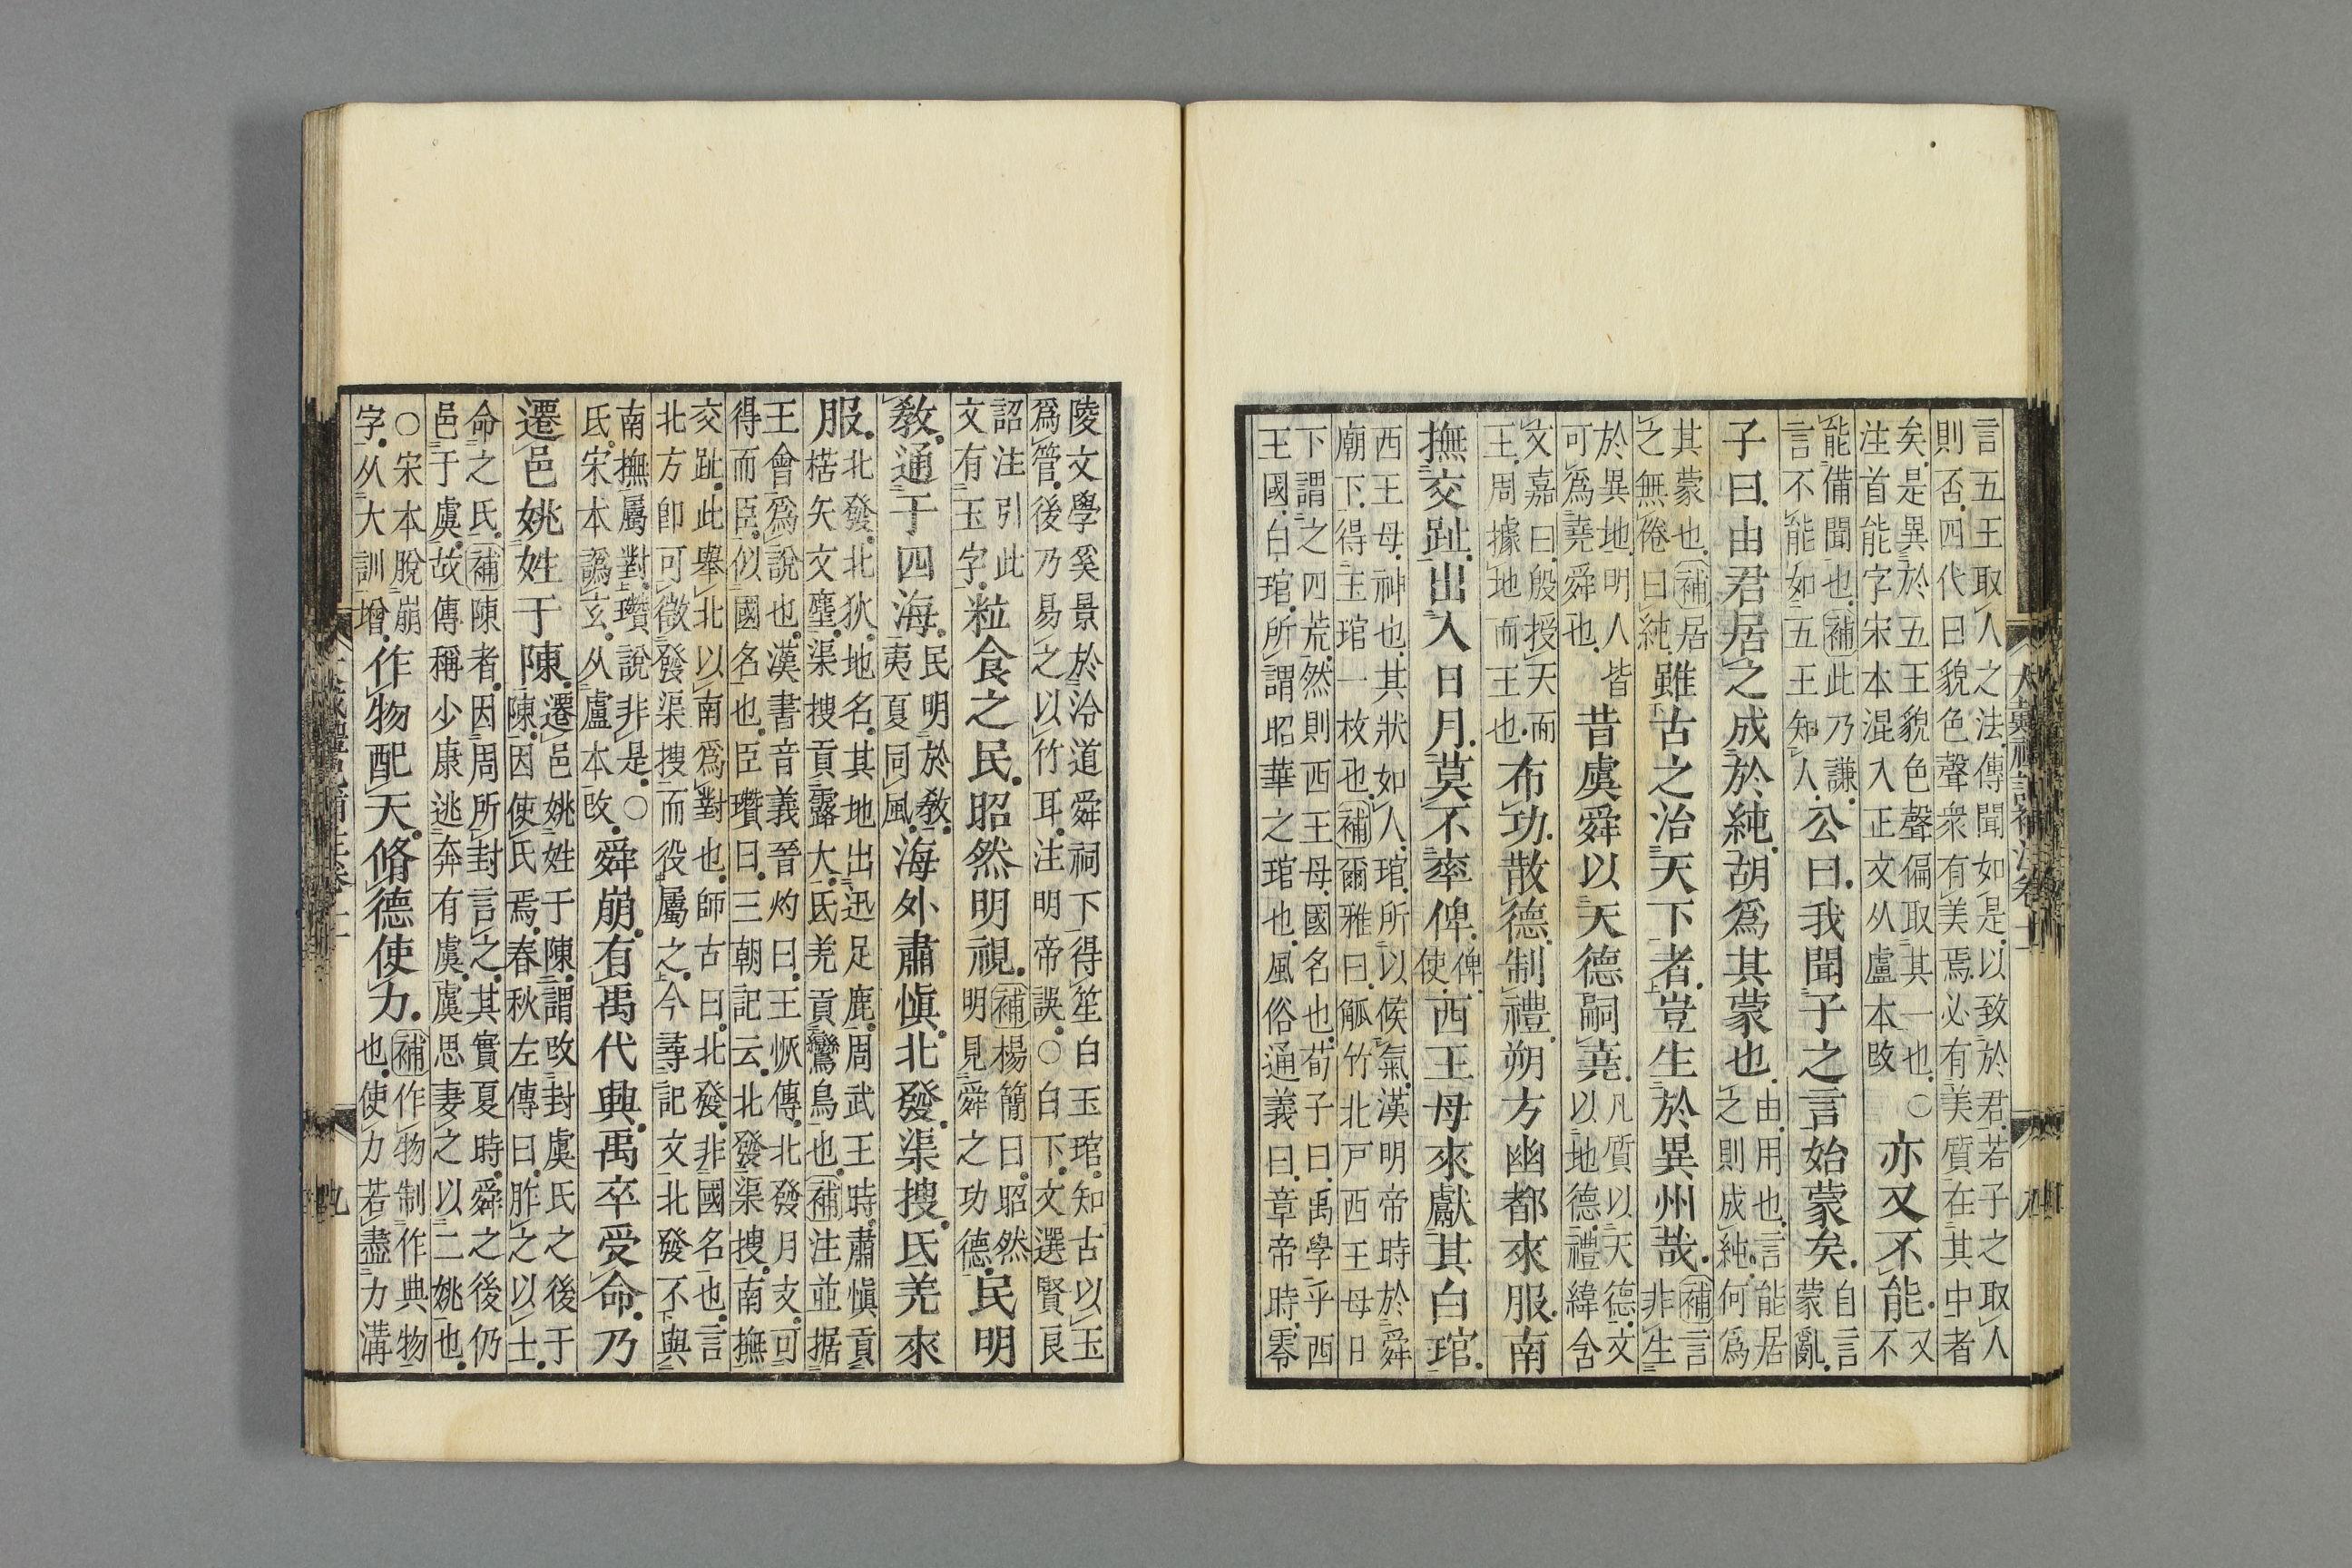 大戴禮記補注卷十一
九
言五王取人之法傳聞如是以致於君若子之取人
則否四代曰貌色聲衆有美焉必有美質在其中者
矣是異於五王貌色聲偏取其一也○
注首能字宋本混入正文从盧本改
亦又不能
又
不
能備聞也補此乃謙
言不能如五王知人
公曰我聞子之言始蒙矣
自言
蒙亂
子曰由君居之成於純胡爲其蒙也
由用也言能居
之則成純何爲
其蒙也補居
之無倦曰純
雖古之治天下者豈生於異州哉
補言
非生
於異地明人皆
可爲堯舜也
昔虞舜以天德嗣堯
凡質以天德文
以地德禮緯含
文嘉曰殷授天而
王周據地而王也
布功散德制禮朔方幽都來服南
撫交趾出入日月莫不率俾
俾
使
西王母來獻其白琯
西王母神也其狀如人琯所以候氣漢明帝時於舜
廟下得玉琯一枚也補爾雅曰觚竹北戸西王母日
下謂之四荒然則西王母國名也荀子曰禹學乎西
王國白琯所謂昭華之琯也風俗通義曰章帝時零
陵文學奚景於泠道舜祠下得笙白玉琯知古以玉
爲管後乃易之以竹耳注明帝誤○白下文選賢良
詔注引此
文有玉字
粒食之民昭然明視
補楊簡曰昭然
明見舜之功德
民明
敎通于四海
民明於敎
夷夏同風
海外肅愼北發渠搜氐羌來
服
北發北狄地名其地出迅足鹿周武王時肅愼貢
楛矢文塵渠搜貢露大氐羌貢鸞鳥也補注並据
王會爲說也漢書音義晉灼曰王恢傳北發月支可
得而臣似國名也臣瓚曰三朝記云北發渠搜南撫
交趾此舉北以南爲對也師古曰北發非國名也言
北方卽可徵發渠搜而役屬之今尋記文北發不與
南撫屬對瓚說非是○
氐宋本譌玄从盧本改
舜崩有禹代興禹卒受命乃
遷邑姚姓于陳
遷邑姚姓于陳謂改封虞氏之後于
陳因使氏焉春秋左傳曰胙之以土
命之氏補陳者因周所封言之其實夏時舜之後仍
邑于虞故傳稱少康逃奔有虞虞思妻之以二姚也
○宋本脫崩
字从大訓增
作物配天脩德使力
補作物制作典物
也使力若盡力溝
九